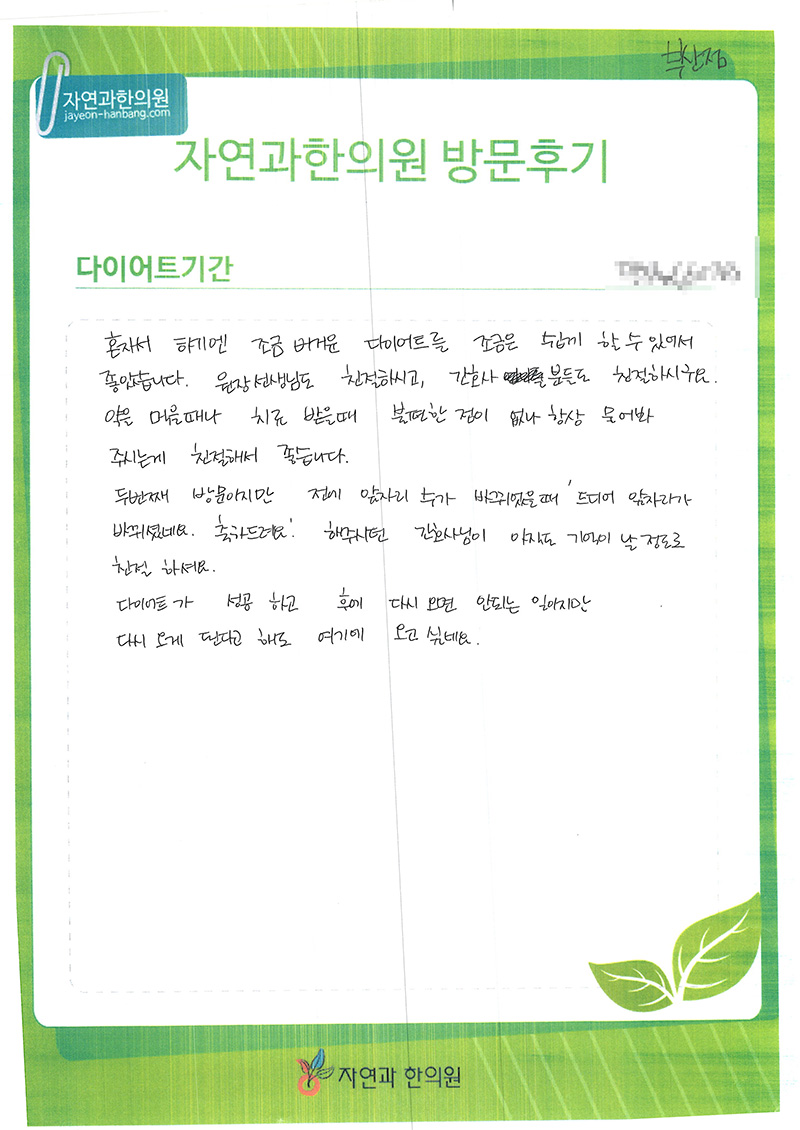 부산점
자연과한의원
jayeon-hanbang.com
자연과한의원 방문후기
다이어트기간
혼자서 하기엔 조금 버거운 다이어트를 조금은 쉽게 할 수 있어서
좋았습니다. 원장선생님도 친절하시고, 간호사 분들도 친절하시구요.
약을 먹을때나 치료 받을때 불편한 점이 없나 항상 물어봐
주시는게 친절해서 좋습니다.
두번째 방문이지만 전에 앞자리 수가 바뀌었을때 '드디어 앞자리가
바뀌셨네요. 축하드려요' 해주시던 간호사님이 아직도 기억이 날 정도로
친절 하세요.
다이어트가 성공 하고 후에 다시 오면 안되는 일이지만
다시 오게 된다고 해도 여기에 오고 싶네요.
자연과 한의원